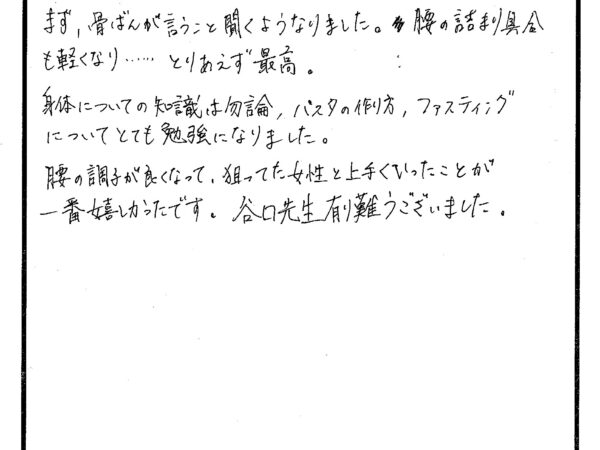 まず，骨ばんが言うこと聞くようなりました。腰の詰まり具合
も軽くなり……とりあえず最高。
身体についての知識は勿論，パスタの作り方，ファスティング
についてとても勉強になりました。
腰の調子が良くなって、狙ってた女性と上手くいったことが
一番嬉しかったです。谷口先生有難うございました。